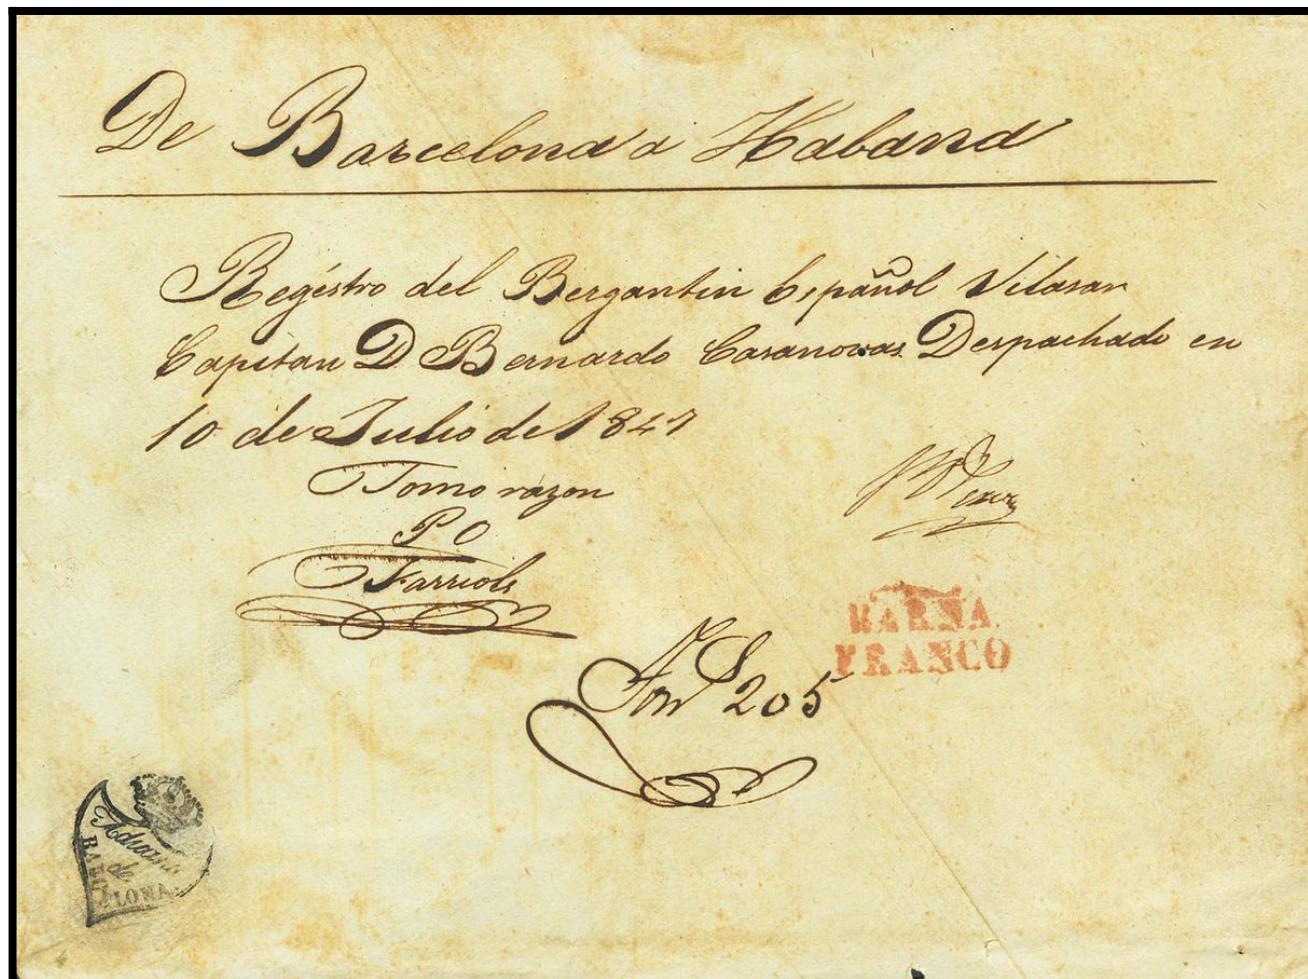 De Barcelona a Habana
Registro del Bergantin Español Vilasar
Capitan D Bernardo Casanovas Despachado en
10 de Julio de 1847
Tomo razon
P O
Farriols
BARNA
FRANCO
205
Aduana
de
BARCELONA